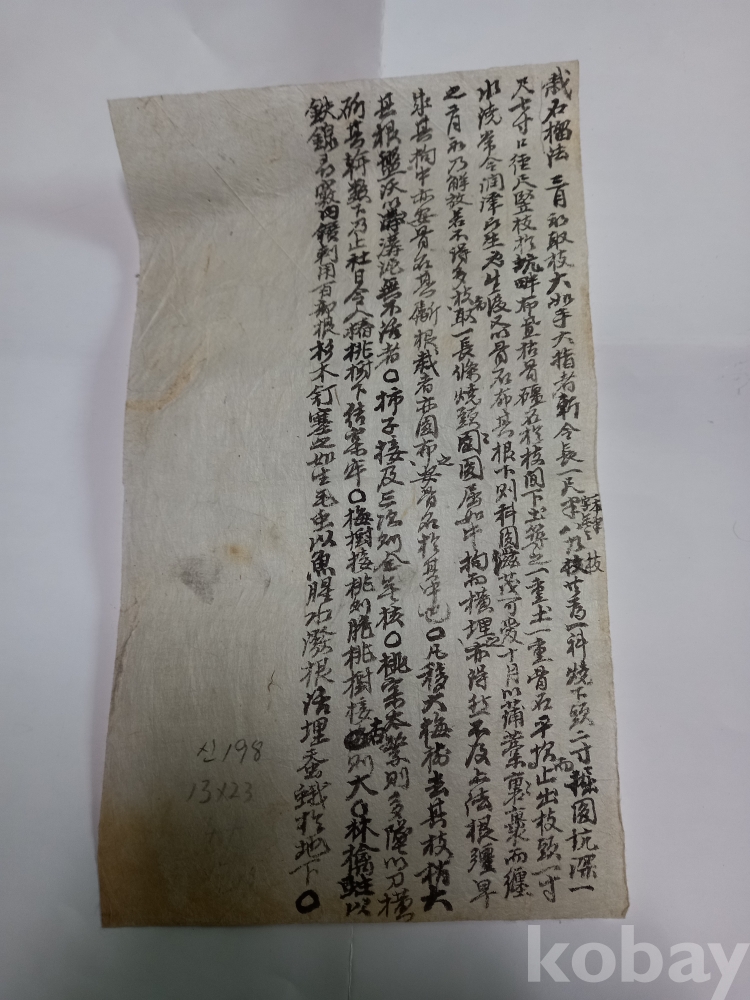 栽石榴法 三月初取枝大如手大指者斬令長一尺半八九枝共爲一科燒下頭二寸掘圓坑深一
尺七寸口徑尺竪枝於坑畔布置枯骨礓石於枝間下土築之一重土一重骨石平坎而止出枝頭一寸
水澆常令潤澤已生又以骨石布其根下則科圓滋茂可愛十月以蒲藁裹而纏
之二月初乃解放若不得多枝取一長條燒頭圓屈如牛拘而橫埋之亦得然不及上法根彊早
成其拘中亦安骨石其斸根栽者亦圓布之安骨石於其中也○凡移大梅樹去其枝梢大
其根盤沃以溝泥無不活者○柿子接及三次則全無核○桃實太繁則多墜以刀橫
斫其幹數下乃止社日令人樁桃樹下結實牢○梅樹接桃則脆桃樹接杏則大○林檎蛀以
鐵線尋窽內鑽刺用百部根杉木釘塞之如生毛虫以魚腥水潑根活埋蚕蛾於地下○
신198
13x23
kobay